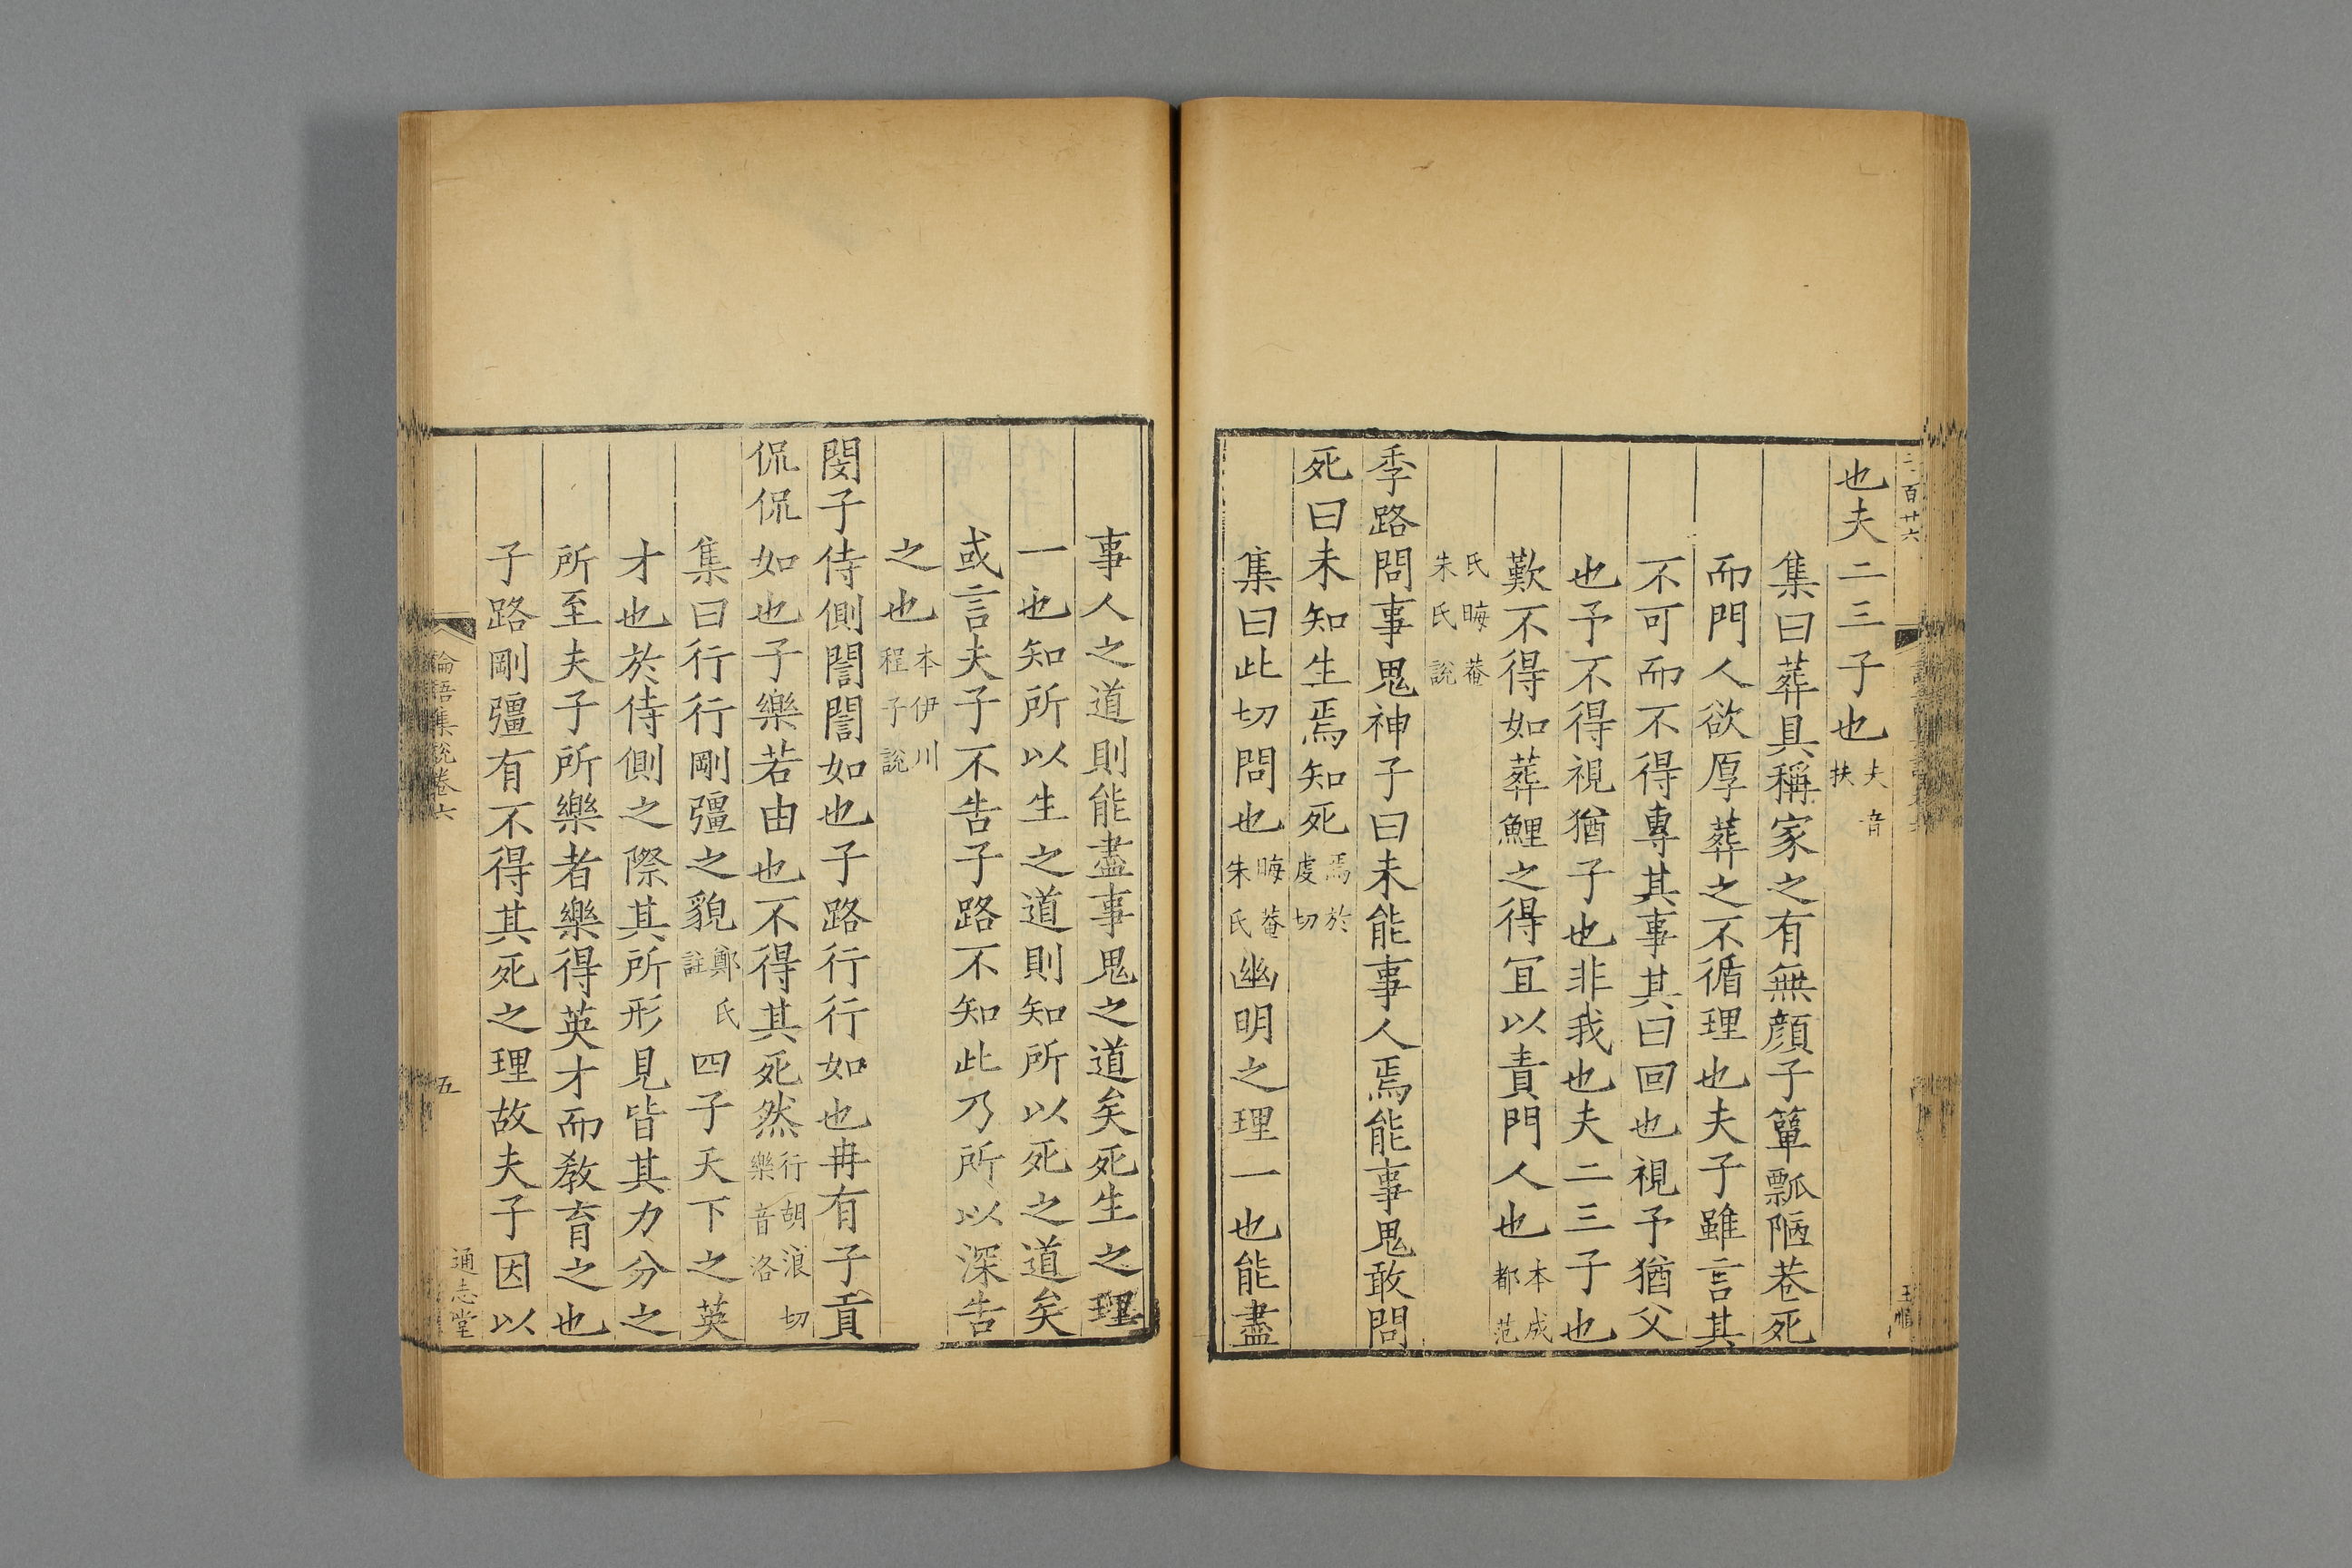 二百廿六
也夫二三子也夫音扶
集曰葬具稱家之有無顔子簞瓢陋巷死
而門人欲厚葬之不循理也夫子雖言其
不可而不得專其事其曰回也視予猶父
也予不得視猶子也非我也夫二三子也
歎不得如葬鯉之得宜以責門人也本成都范
氏晦菴朱氏說
季路問事鬼神子曰未能事人焉能事鬼敢問
死曰未知生焉知死焉於虔切
集曰此切問也晦菴朱氏幽明之理一也能盡
事人之道則能盡事鬼之道矣死生之理
一也知所以生之道則知所以死之道矣
或言夫子不告子路不知此乃所以深告
之也本伊川程子說
閔子侍側誾誾如也子路行行如也冉有子貢
侃侃如也子樂若由也不得其死然行胡浪切樂音洛
集曰行行剛彊之貌鄭氏註四子天下之英
才也於侍側之際其所形見皆其力分之
所至夫子所樂者樂得英才而教育之也
子路剛彊有不得其死之理故夫子因以
論語集說卷六
五
通志堂